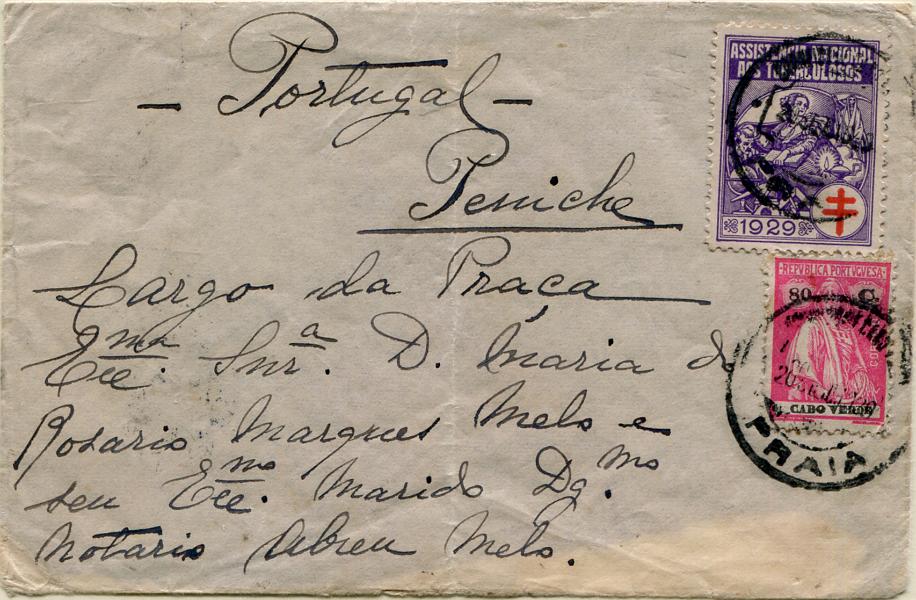 — Portugal —
Peniche
Largo da Praça
Exma. Snra. D. Maria do
Rosario Marques Melo e
seu Exmo. Marido Dgmo.
Notario Abreu Melo.
ASSISTENCIA NACIONAL
AOS TUBERCULOSOS
1929
REPUBLICA PORTUGUESA
80 C.
CABO VERDE
PRAIA